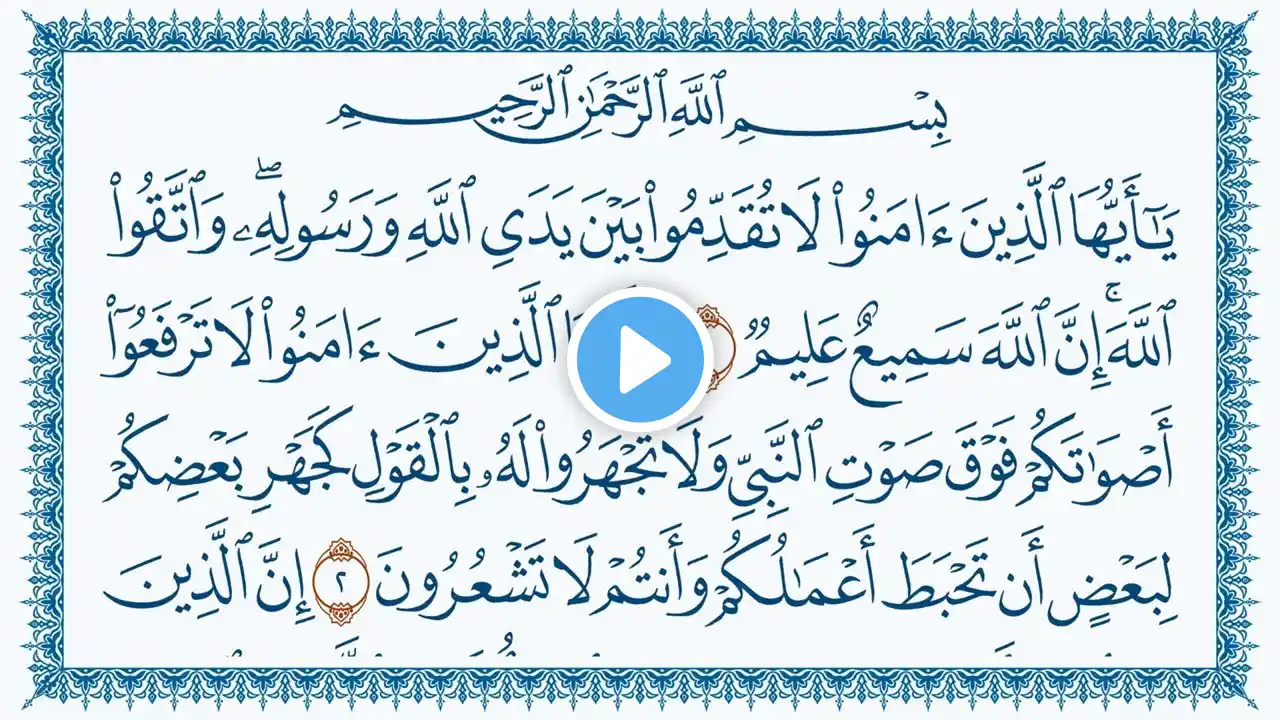 بِسْمِ ٱللَّهِ ٱلرَّحْمَٰنِ ٱلرَّحِيمِ
يَٰٓأَيُّهَا ٱلَّذِينَ ءَامَنُوا۟ لَا تُقَدِّمُوا۟ بَيْنَ يَدَىِ ٱللَّهِ وَرَسُولِهِۦ ۖ وَٱتَّقُوا۟
ٱللَّهَ ۚ إِنَّ ٱللَّهَ سَمِيعٌ عَلِيمٌ ٱلَّذِينَ ءَامَنُوا۟ لَا تَرْفَعُوٓا۟
أَصْوَٰتَكُمْ فَوْقَ صَوْتِ ٱلنَّبِىِّ وَلَا تَجْهَرُوا۟ لَهُۥ بِٱلْقَوْلِ كَجَهْرِ بَعْضِكُمْ
لِبَعْضٍ أَن تَحْبَطَ أَعْمَٰلُكُمْ وَأَنتُمْ لَا تَشْعُرُونَ ٢ إِنَّ ٱلَّذِينَ